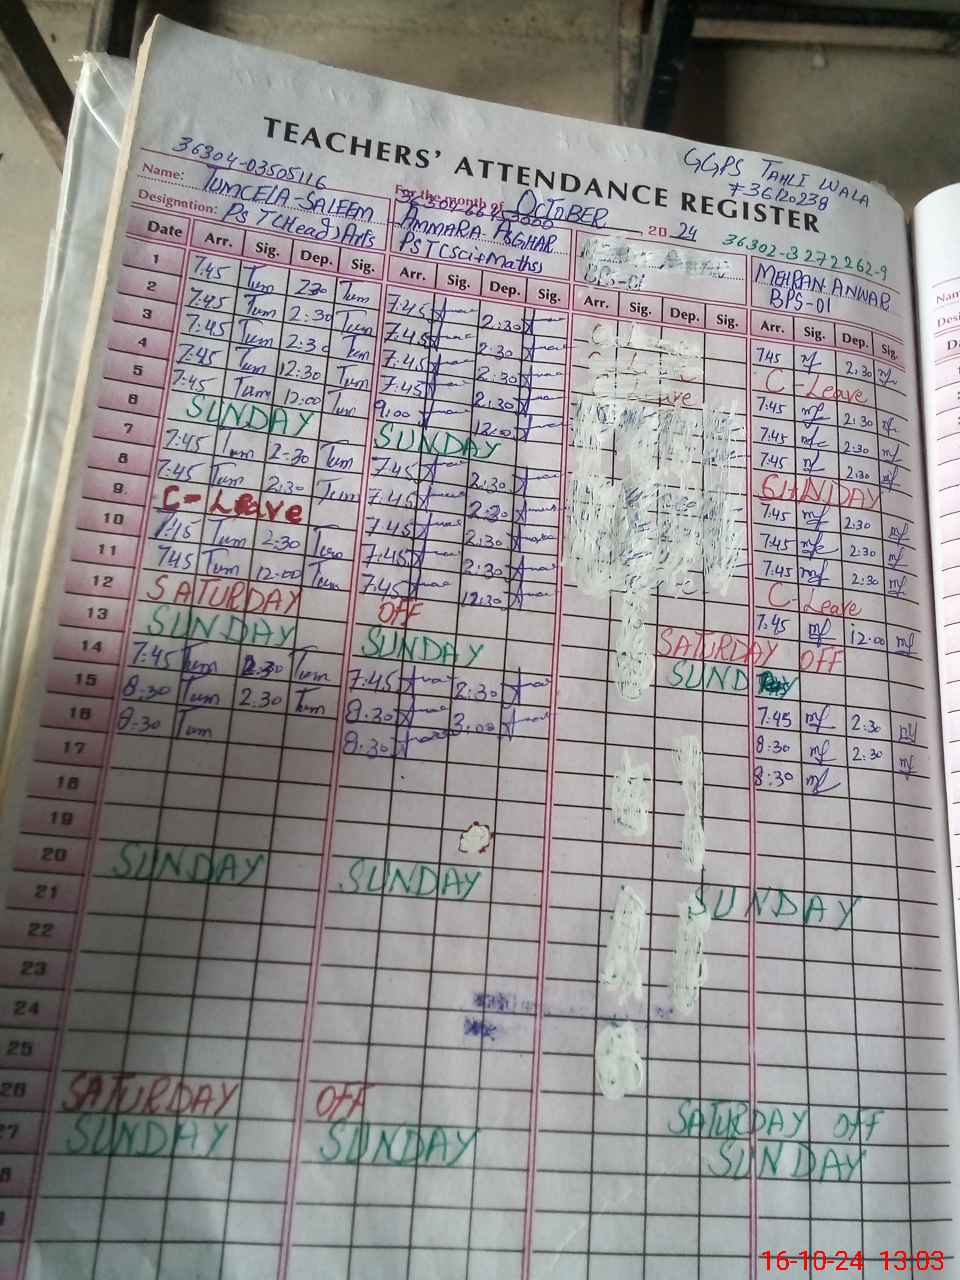 TEACHERS' ATTENDANCE REGISTER
GGPS TAHLI WALA
#36120238
36304-03505116
Name: TUMCEIA-SALEEM
For the month of OCTOBER 20 24
36302-3272262-9
Designation: PSTC(Head) Arts
AMMARA ASGHAR
PSTC(Sci+Maths)
BPS-01
MEHRAN ANWAR
BPS-01
Date Arr. Sig. Dep. Sig. Arr. Sig. Dep. Sig. Arr. Sig. Dep. Sig. Arr. Sig. Dep. Sig.
1 7:45 Tum 2:30 Tum 7:45 2:30 7:45 mf 2:30 mf
2 7:45 Tum 2:30 Tum 7:45 2:30 C-Leave
3 7:45 Tum 2:30 Tum 7:45 2:30 7:45 mf 2:30 mf
4 7:45 Tum 12:30 Tum 7:45 2:30 7:45 mf 2:30 mf
5 7:45 Tum 12:00 Tum 9:00 12:00 7:45 mf 2:30 mf
6 SUNDAY SUNDAY SUNDAY
7 7:45 Tum 2:30 Tum 7:45 2:30 7:45 mf 2:30 mf
8 7:45 Tum 2:30 Tum 7:45 2:30 7:45 mf 2:30 mf
9 C-Leave 7:45 2:30 7:45 mf 2:30 mf
10 7:45 Tum 2:30 Tum 7:45 2:30 C-Leave
11 7:45 Tum 12:00 Tum 7:45 12:30 7:45 mf 12:00 mf
12 SATURDAY OFF SATURDAY OFF
13 SUNDAY SUNDAY SUNDAY
14 7:45 Tum 2:30 Tum 7:45 2:30 7:45 mf 2:30 mf
15 8:30 Tum 2:30 Tum 8:30 3:00 8:30 mf 2:30 mf
16 8:30 Tum 8:30 8:30 mf
17
18
19
20 SUNDAY SUNDAY SUNDAY
21
22
23
24
25
26 SATURDAY OFF SATURDAY OFF
27 SUNDAY SUNDAY SUNDAY
16-10-24 13:03